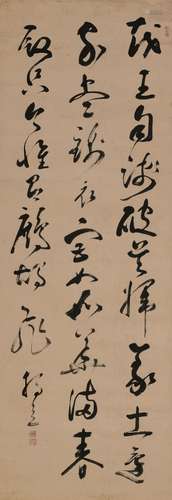 越王句踐破吳歸義士還
家盡錦衣宮女如花滿春
殿只今惟有鷓鴣飛